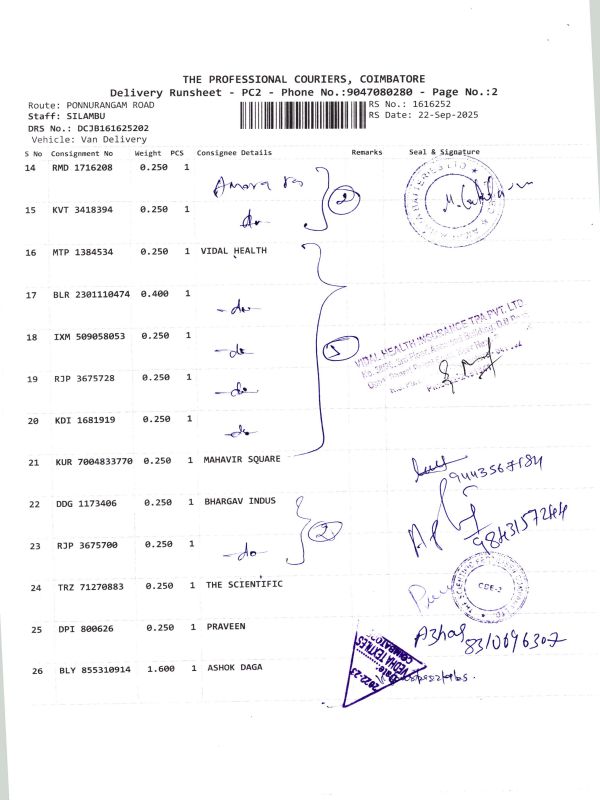 THE PROFESSIONAL COURIERS, COIMBATORE
Delivery Runsheet - PC2 - Phone No.:9047080280 - Page No.:2
Route: PONNURANGAM ROAD
RS No.: 1616252
Staff: SILAMBU
RS Date: 22-Sep-2025
DRS No.: DCJB161625202
Vehicle: Van Delivery
S No Consignment No Weight PCS Consignee Details Remarks Seal & Signature
14 RMD 1716208 0.250 1
2
15 KVT 3418394 0.250 1 do
16 MTP 1384534 0.250 1 VIDAL HEALTH
17 BLR 2301110474 0.400 1 -do-
18 IXM 509058053 0.250 1 -do-
5
VIDAL HEALTH INSURANCE TPA PVT. LTD
19 RJP 3675728 0.250 1 -do-
20 KDI 1681919 0.250 1 -do-
21 KUR 7004833770 0.250 1 MAHAVIR SQUARE
9443567184
22 DDG 1173406 0.250 1 BHARGAV INDUS
2
23 RJP 3675700 0.250 1 -do-
9843157244
24 TRZ 71270883 0.250 1 THE SCIENTIFIC
CBE-2
25 DPI 800626 0.250 1 PRAVEEN
Azhar
8310696307
26 BLY 855310914 1.600 1 ASHOK DAGA
VEDHA TEXTILES
COIMBATORE
Date:
2022-23